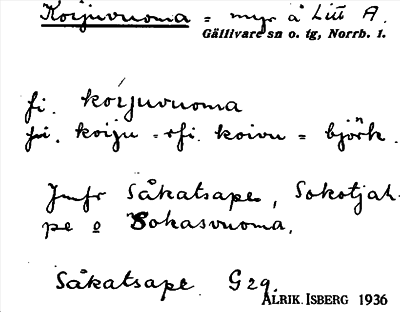 Koijuvuoma = myr å Litt A.
Gällivare sn o. tg, Norrb. l.
fi. koijuvuoma
fi. koiju = rfi. koivu = björk.
Jmfr Såkatsape, Sokotjah-
pe o Sokasvuoma.
Såkatsape G 29.
ALRIK ISBERG 1936